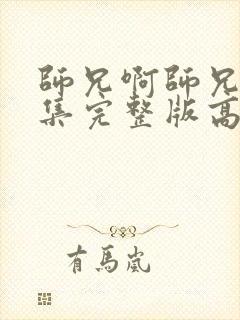 師兄啊師兄
集完整版高
有馬嵐